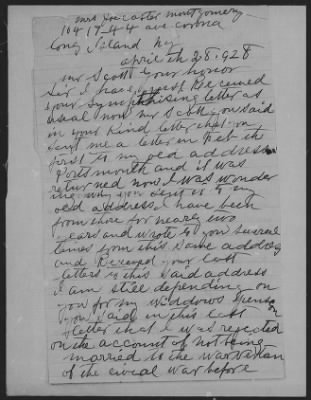 mrs Joe caster montgomery
104 17-44 ave corona
Long Island Ny
april th 28.928
mr Scott your honor
Sir I have Receuned
your Sympthising letter as
usual now mr Scott you said
in your Kind letter that you
sent me a letter in Feb the
first to my old address
Portsmouth and it was
returned now I was wonder
ing why you sent it to my
old address, I have been
from thore for nearly two
years and wrote to you several
times from this same address
and Receved your last
letters to this said address
I am still depending on
you for my widdows Spensi
on you said in this last
letter that I was rejected
on the account of not being
married to the war vetran
of the civial war before